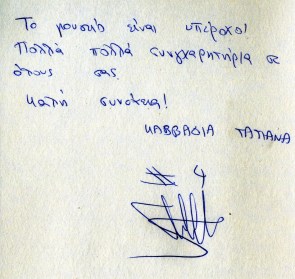 Το μουσείο είναι υπέροχο!
Πολλά πολλά συγχαρητήρια σε
όλους σας.
Καλή συνέχεια!
ΚΑΒΒΑΔΙΑ ΤΑΤΙΑΝΑ